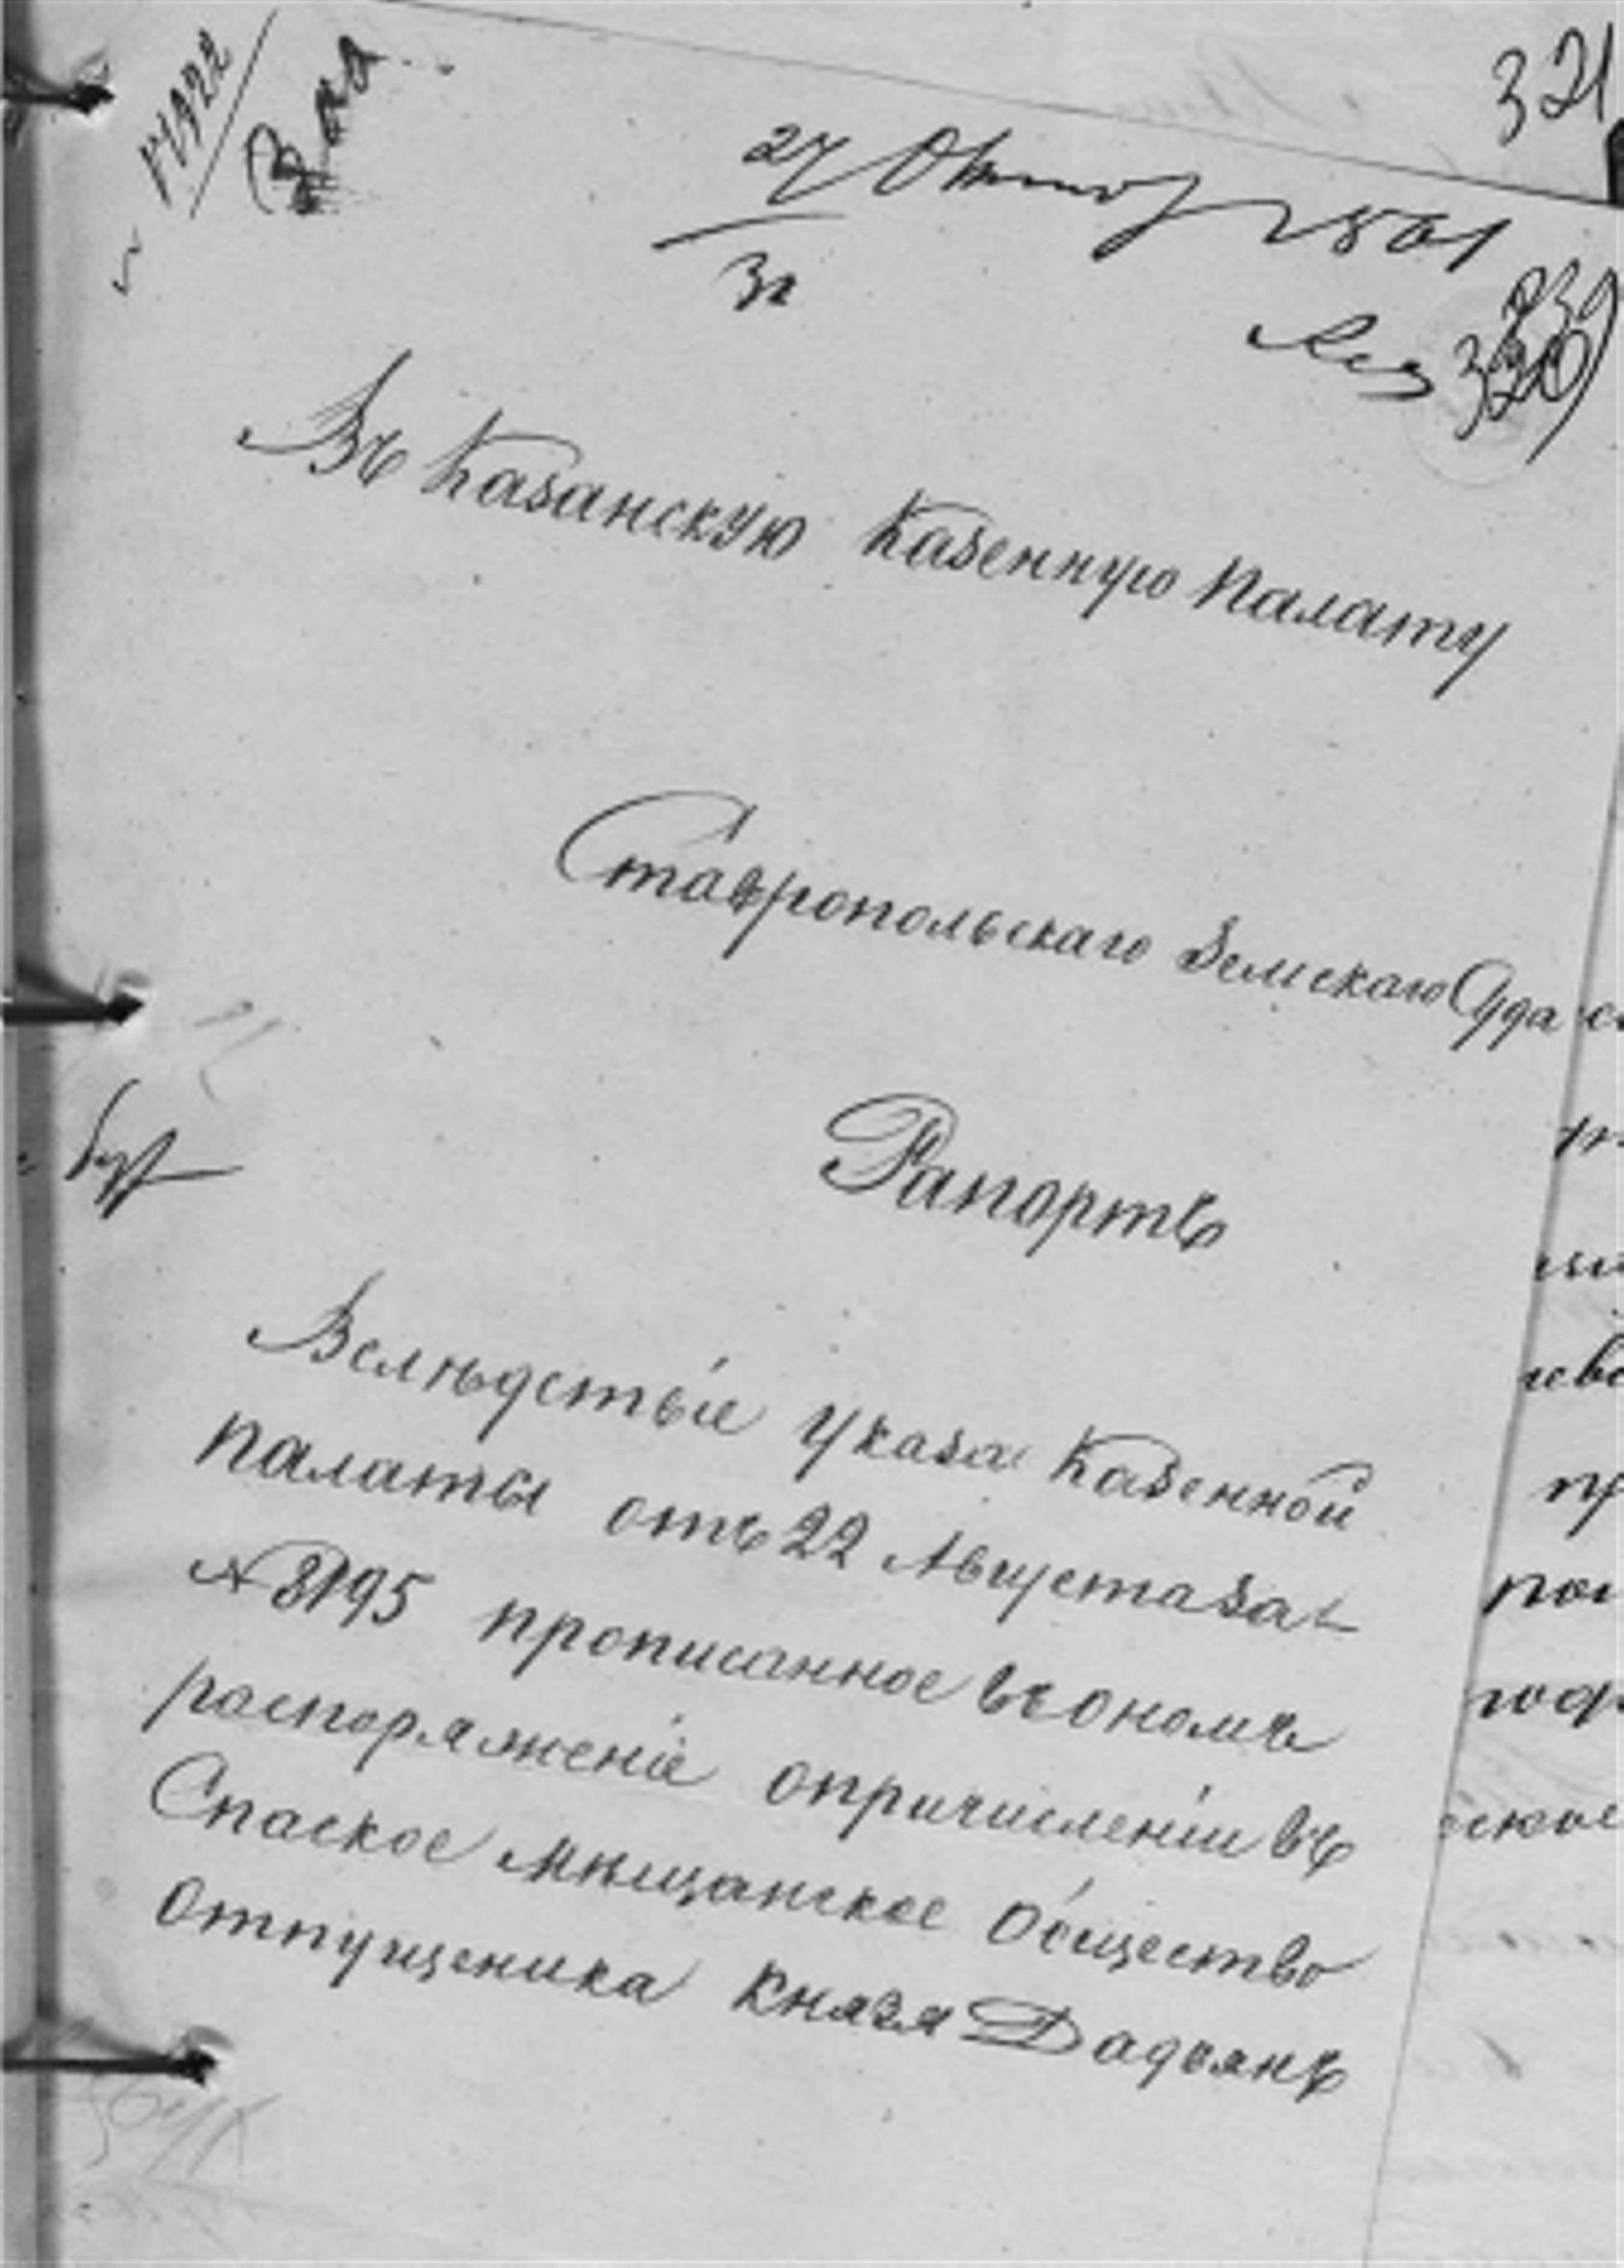 321
27 Октяб 1861
31
320
Въ Казанскую Казенную Палату
Ставропольскаго Земскаго Суда
Рапортъ
Вслѣдствіе указа Казенной
палаты отъ 22 Августа за
№ 8195 прописанное въ ономъ
распоряженіе опричисленіи въ
Спаское мѣщанское общество
отпущеника Князя Дадьянъ